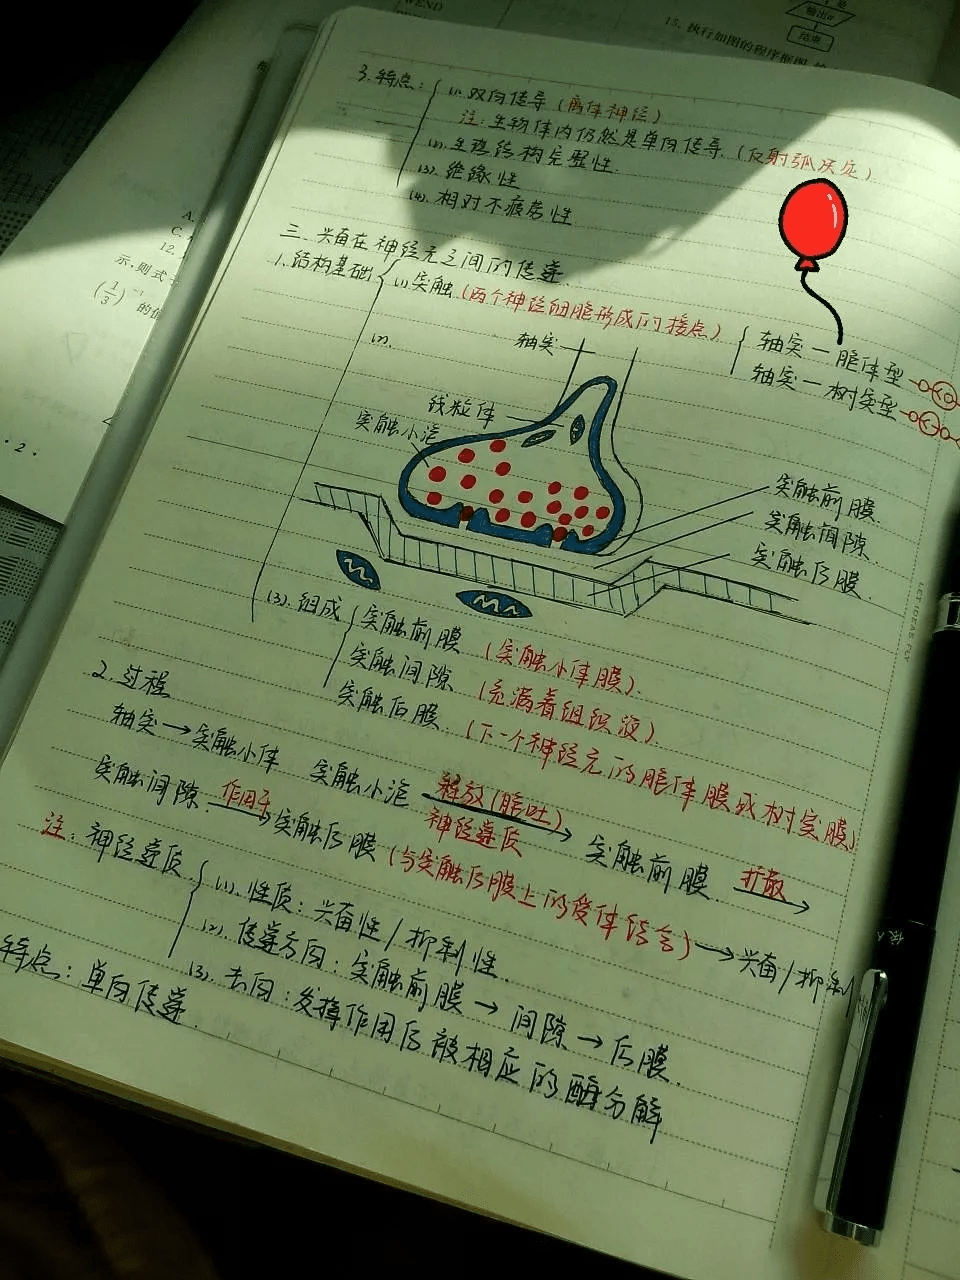 WEND
输出a
结束
15. 执行如图的程序框图
A.
C.
12.
示,则式
(1/3)
的值
· 2 ·
3. 特点: (1). 双向传导 (离体神经)
注: 生物体内仍然是单向传导. (反射弧决定)
(2). 生理结构完整性.
(3). 绝缘性
(4). 相对不疲劳性
三. 兴奋在神经元之间的传递
1. 结构基础 (1). 突触 (两个神经细胞形成的接点)
轴突—胞体型
轴突—树突型
(2).
轴突
线粒体
突触小泡
突触前膜
突触间隙
突触后膜
(3). 组成 突触前膜 (突触小体膜).
突触间隙 (充满着组织液).
突触后膜. (下一个神经元的胞体膜或树突膜)
2. 过程
轴突→突触小体 突触小泡 释放(胞吐) 神经递质→ 突触前膜 扩散→
突触间隙 作用于→突触后膜 (与突触后膜上的受体结合)→兴奋/抑制
注: 神经递质 (1). 性质: 兴奋性/抑制性
(2). 传递方向: 突触前膜→间隙→后膜.
(3). 去向: 发挥作用后被相应的酶分解
特点: 单向传递.
LET IDEAS FLY